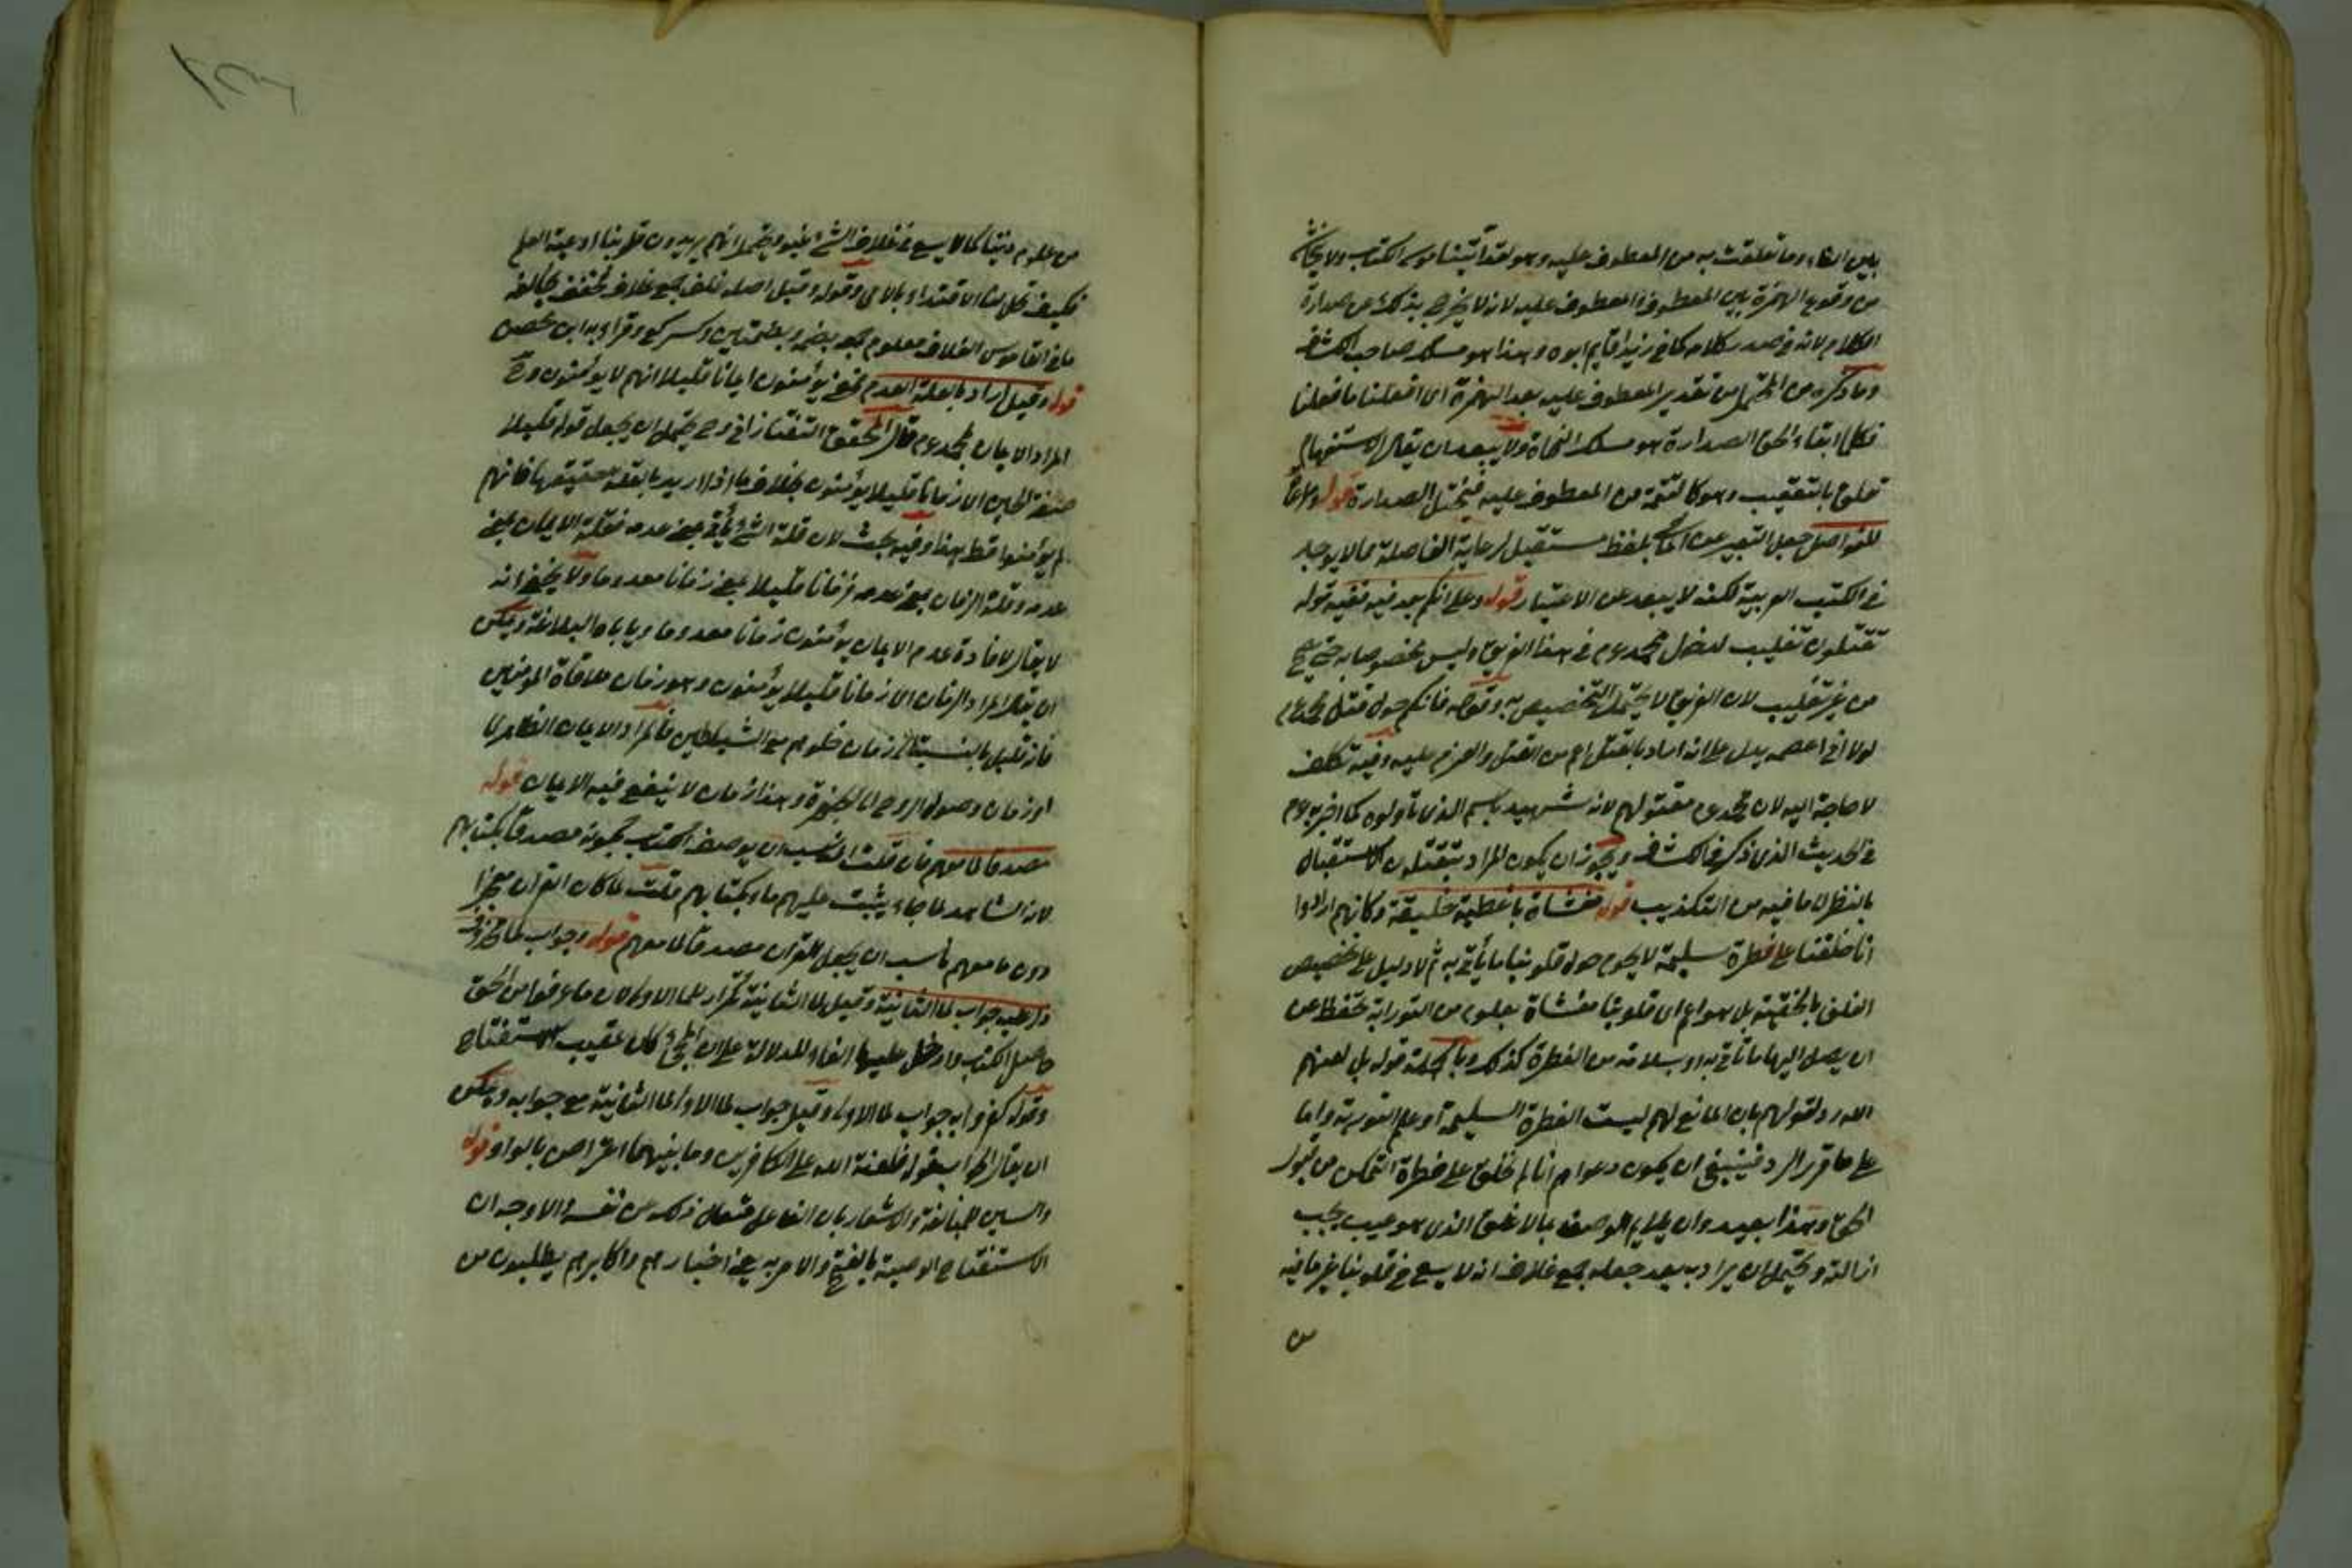 بين الفاء وما تعلقت به من المعطوف عليه وهو لقد آتينا موسى الكتاب ولا يخاف
من وقوع الهمزة بين المعطوف والمعطوف عليه لانه لا يخرج بذلك عن صدارة
الكلام لانه في صدر كلام كما في زيد اقايم ابوه وهذا هو مسلك صاحب الكشاف
وما ذكره من المحتمل من تقدير المعطوف عليه بعد الهمزة اى افعلنا ما فعلنا
فكلما ابقاء لحق الصدارة هو مسلك النحاة ولا يبعد ان يقال الاستفهام
تعلق بالتعقيب وهو كالتتمة من المعطوف عليه فيختل الصدارة قوله ومراعاة
للفواصل جعل التعبير عن الماضى بلفظ مستقبل لرعاية الفاصلة مما لا يوجد
في الكتب العربية لكنه لا يبعد عن الاعتبار قوله وعلى انكم بعد فيه ففيه قوله
تقتلون تغليب لدخل محمد عم في هذا الفريق وليس مخصوصا به حتى يصح
من غير تغليب لان الفريق لا يحتمل التخصيص به وقوله فانكم حول قتل محمد عم
لولا انى اعصمه يدل على انه اراد بالقتل اعم من القتل والعزم عليه وفيه تكلف
لا حاجة اليه لان محمد عم مقتولهم لانه شهيد باسم الذى ناولوه كما اخبر به عم
في الحديث الذى ذكر في الكشاف ويجوز ان يكون المراد بتقتلون الاستقبال
بالنظر لما فيه من التكذيب قوله مغشاة باغطية خليقة وكانهم ارادوا
انا خلقنا على فطرة سليمة لا يحوم حول قلوبنا ما يأتى به ثم لا دليل على تخصيص
الغلف بالخلقية بل هو اعم اى قلوبنا مغشاة بعلوم من التوراية تحفظ عن
ان يصل اليها ما تأتى به او سلامة من الفطرة كذلك وبالجملة قوله بل لعنهم
الله رد لقولهم بان المانع لهم ليست الفطرة السليمة او علم التورية واما
على ما قرر الرد فينبغى ان يكون دعواهم انا لم نخلق على فطرة التمكن من قبول
الحق وهذا بعيد وان يلايم الوصف بالاغلف الذى هو عيب يجب
ازالته ويحتمل ان يراد به بعد جعله جمع غلاف انه لا يسع في قلوبنا غير ما فيه
من
من علوم ديننا كما لا يسع في غلاف الشىء غيره ويحتمل انهم يريدون قلوبنا اوعية العلم
فكيف تحل لنا الاقتداء بالامى وقوله وقيل اصله غلف جمع غلاف فخفف يخالفه
ما في القاموس الغلاف معلوم جمعه بضمة وبضمتين وكسر كع وقرأ به ابن محيصن
قوله وقيل اراد بالقلة العدم فمعنى يؤمنون ايمانا قليلا انهم لا يؤمنون وح
المراد الايمان بمحمد عم قال المحقق التفتازانى وح يحتمل ان يجعل قوله قليلا
صفة للحين اى زمانا قليلا يؤمنون بخلاف ما اذا اريد بالقلة حقيقتها فانهم
لم يؤمنوا قط هذا وفيه بحث لان قلة الشىء يأتى بمعنى عدمه فقلة الايمان بمعنى
عدمه وقلة الزمان بمعنى عدمه فزمانا قليلا بمعنى زمانا معدوما ولا يخفى انه
لا يقال لافادة عدم الايمان يؤمنون زمانا معدوما ويأباه البلاغة ويمكن
ان يقال المراد الزمان اى زمانا قليلا يؤمنون وهو زمان ملاقاة المؤمنين
فانه قليل بالنسبة الى زمان خلوهم مع الشياطين فالمراد الايمان الظاهرى
او زمان وصول الروح الى الحنجرة وهذا زمان لا ينفع فيه الايمان قوله
مصدقا لما معهم فان قلت المناسب ان يوصف الكتاب بكونه مصدقا بكتابهم
لانه الشاهد لما جاء ويثبت عليهم ما وكتابهم قلت لما كان القرآن معجزا
دون ما معهم ناسب ان يجعل القرآن مصدقا لما معهم قوله وجواب لما محذوف
دل عليه جواب لما الثانية وقيل لما الثانية تكرار للما الاولى لان ما عرفوا من الحق
حاصل الكتاب وادخل عليها الفاء للدلالة على ان المجىء كان عقيب الاستفتاح
وقوله كفروا به جواب لما الاولى وقيل جواب لما الاولى لما الثانية مع جوابه ويمكن
ان يقال الجواب قوله فلعنة الله على الكافرين وما بينهما اعتراض بالواو قوله
والسين للمبالغة والاشعار بان الفاعل يسأل ذلك عن نفسه والاوجه ان
الاستفتاح الوصية بالفتح والامر به يعنى اخبارهم واكابرهم يطلبون من